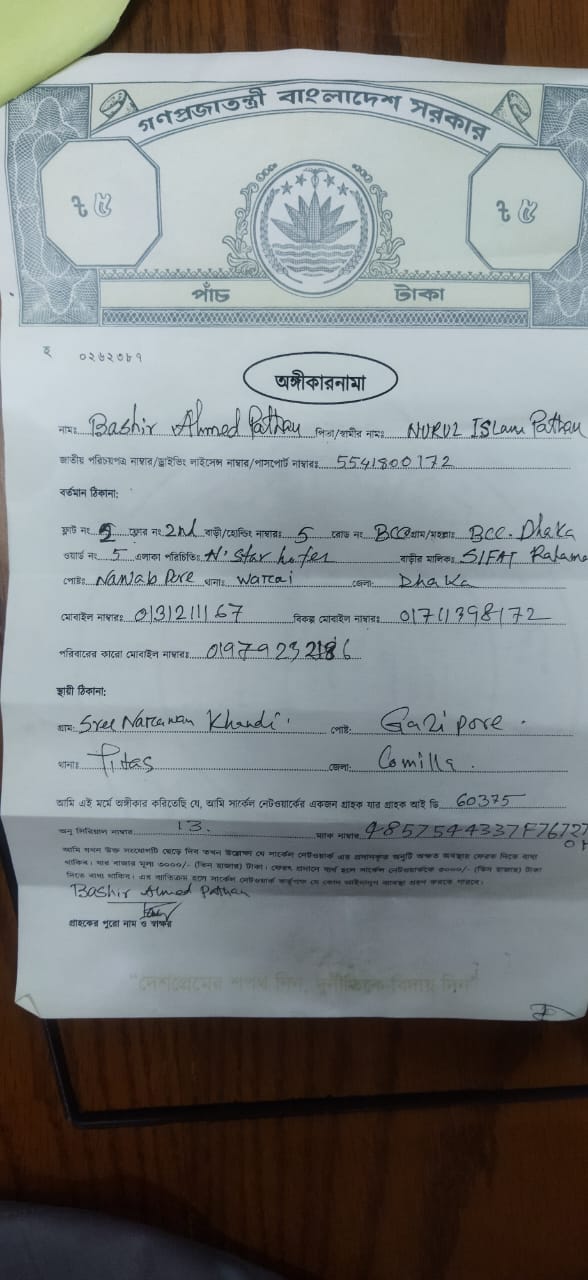 গণপ্রজাতন্ত্রী বাংলাদেশ সরকার
৳ ৫ ৳ ৫
পাঁচ টাকা
হ ০২৬২৩৮৭
অঙ্গীকারনামা
নামঃ Bashir Ahmed Pathan পিতা/স্বামীর নামঃ NURUL ISLam Pathan
জাতীয় পরিচয়পত্র নাম্বার/ড্রাইভিং লাইসেন্স নাম্বার/পাসপোর্ট নাম্বারঃ 5541800172
বর্তমান ঠিকানা:
ফ্লাট নং ফ্লোর নং 2nd বাড়ী/হোল্ডিং নাম্বারঃ 5 রোড নং BCC গ্রাম/মহল্লাঃ BCC. Dhaka
ওয়ার্ড নং 5 এলাকা পরিচিতিঃ N' Star বাড়ীর মালিকঃ SIFAT
পোষ্টঃ Nawab Pore থানাঃ warai জেলা: Dhaka
মোবাইল নাম্বারঃ 0131211167 বিকল্প মোবাইল নাম্বারঃ 01711398172
পরিবারের কারো মোবাইল নাম্বারঃ
স্থায়ী ঠিকানা:
গ্রাম: Sree Narawan Khandi পোষ্ট: Gazi pore.
থানাঃ Titas জেলা: Comilla.
আমি এই মর্মে অঙ্গীকার করিতেছি যে, আমি সার্কেল নেটওয়ার্কের একজন গ্রাহক যার গ্রাহক আই ডি 60375
অনু সিরিয়াল নাম্বার 13. ম্যাক নাম্বার 4857544337F76727
আমি যখন উক্ত সংযোগটি ছেড়ে দিব তখন উল্লেখ্য যে সার্কেল নেটওয়ার্ক এর প্রদানকৃত অনুটি অক্ষত অবস্থায় ফেরত দিতে বাধ্য
থাকিব। যার বাজার মূল্য ৩০০০/- (তিন হাজার) টাকা। ফেরত প্রদানে ব্যর্থ হলে সার্কেল নেটওয়ার্ককে ৩০০০/- (তিন হাজার) টাকা
দিতে বাধ্য থাকিব। এর ব্যতিক্রম হলে সার্কেল নেটওয়ার্ক কর্তৃপক্ষ যে কোন আইনানুগ ব্যবস্থা গ্রহণ করতে পারবে।
Bashir Ahmed Pathan
গ্রাহকের পুরো নাম ও স্বাক্ষর
"দেশপ্রেমের শপথ নিন, দুর্নীতিকে বিদায় দিন"